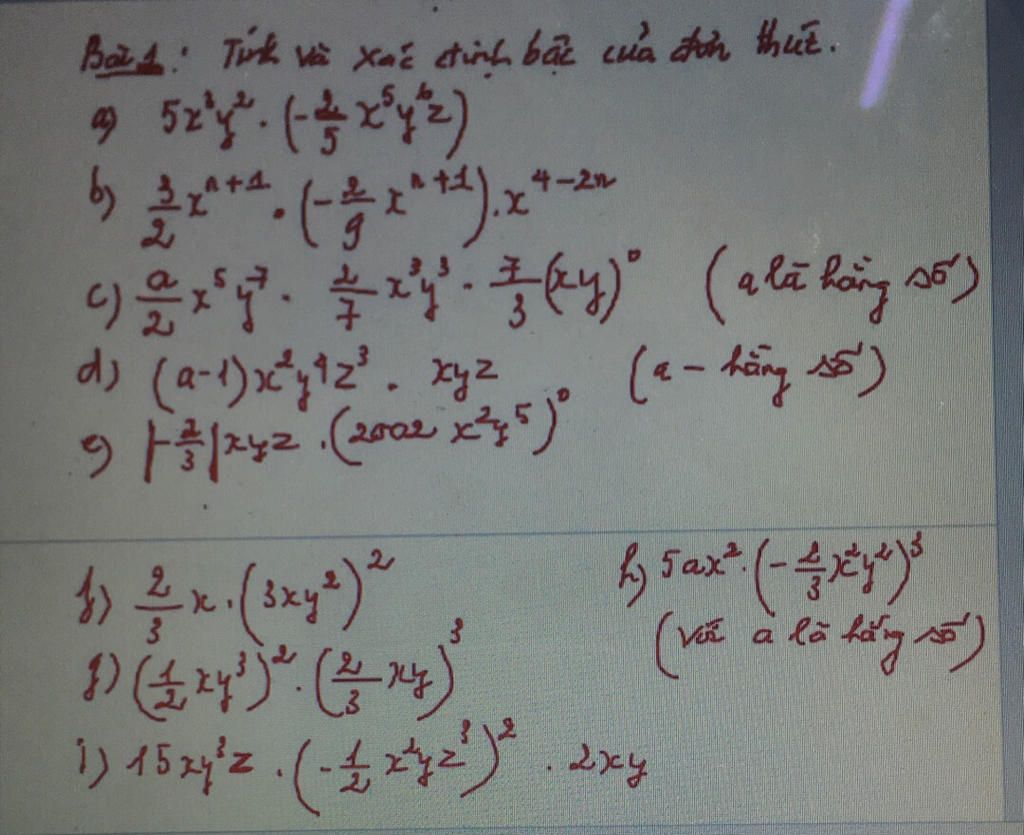 Bài 1: Tính và xác định bậc của đơn thức.
a) 5x³y² · (-2/5 x⁵y⁶z)
b) 3/2 xⁿ⁺¹ · (-2/9 xⁿ⁺¹) . x⁴⁻²ⁿ
c) a/2 x⁵y⁷ · 2/7 x³y³ · 7/3 (xy)⁰ (a là hằng số)
d) (a-1)x²y⁴z³ · xyz (a - hằng số)
e) |-2/3| xyz . (2002 x²y⁵)⁰
f) 2/3 x . (3xy²)²
g) (1/2 xy³)² · (2/3 xy)³
h) 5ax² · (-2/3 x²y²)³
(với a là hằng số)
i) 15xy³z · (-1/2 x²yz³)² . 2xy